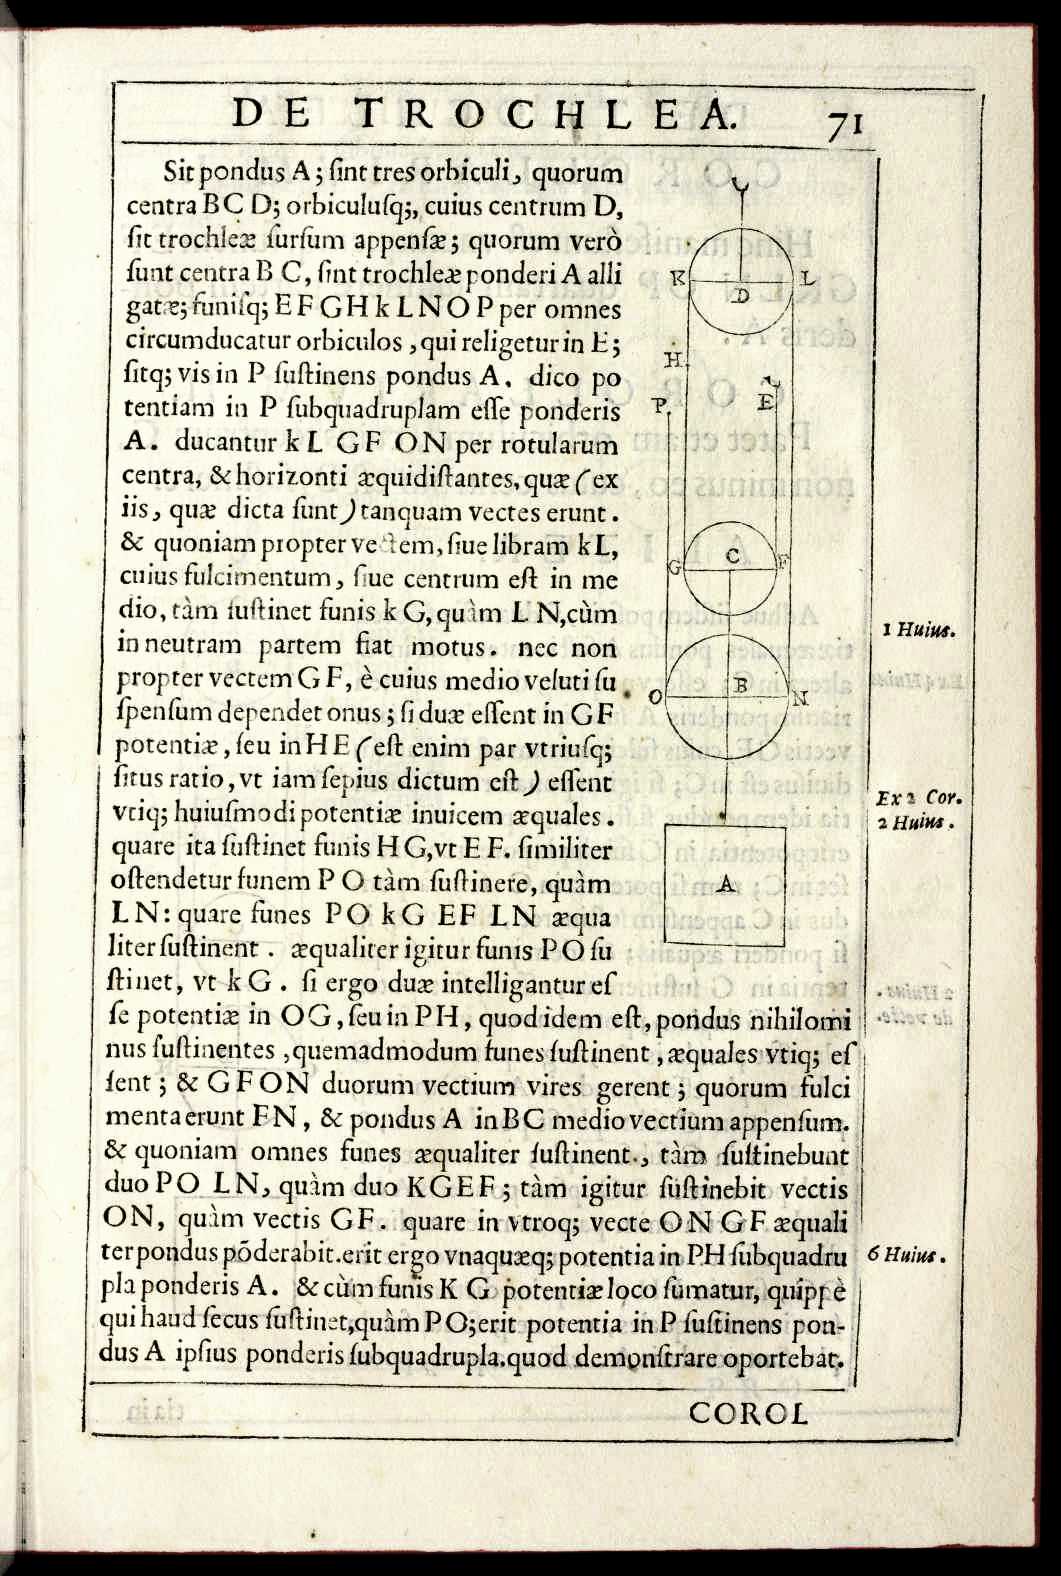 DE TROCHLEA. 71
Sit pondus A; ſint tres orbiculi, quorum
centra B C D; orbiculuſq;, cuius centrum D,
ſit trochleæ ſurſum appenſæ; quorum verò
ſunt centra B C, ſint trochleæ ponderi A alli
gatæ; funiſq; E F G H k L N O P per omnes
circumducatur orbiculos, qui religetur in E;
ſitq; vis in P ſuſtinens pondus A. dico po
tentiam in P ſubquadruplam eſſe ponderis
A. ducantur k L G F O N per rotularum
centra, & horizonti æquidiſtantes, quæ (ex
iis, quæ dicta ſunt) tanquam vectes erunt.
& quoniam propter vectem, ſiue libram k L,
cuius fulcimentum, ſiue centrum eſt in me
dio, tàm ſuſtinet funis k G, quàm L N, cùm
in neutram partem fiat motus. nec non
propter vectem G F, è cuius medio veluti ſu
ſpenſum dependet onus; ſi duæ eſſent in G F
potentiæ, ſeu in H E (eſt enim par vtriuſq;
ſitus ratio, vt iam ſepius dictum eſt) eſſent
vtiq; huiuſmodi potentiæ inuicem æquales.
quare ita ſuſtinet funis H G, vt E F. ſimiliter
oſtendetur funem P O tàm ſuſtinere, quàm
L N: quare funes P O k G E F L N æqua
liter ſuſtinent. æqualiter igitur funis P O ſu
ſtinet, vt k G. ſi ergo duæ intelligantur eſ
ſe potentiæ in O G, ſeu in P H, quod idem eſt, pondus nihilomi
nus ſuſtinentes, quemadmodum funes ſuſtinent, æquales vtiq; eſ
ſent; & G F O N duorum vectium vires gerent; quorum fulci
menta erunt F N, & pondus A in B C medio vectium appenſum.
& quoniam omnes funes æqualiter ſuſtinent., tàm ſuſtinebunt
duo P O L N, quàm duo K G E F; tàm igitur ſuſtinebit vectis
O N, quàm vectis G F. quare in vtroq; vecte O N G F æquali
ter pondus põderabit. erit ergo vnaquæq; potentia in P H ſubquadru
pla ponderis A. & cùm funis K G potentiæ loco ſumatur, quippè
qui haud ſecus ſuſtinet, quàm P O; erit potentia in P ſuſtinens pon-
dus A ipſius ponderis ſubquadrupla. quod demonſtrare oportebat.
COROL
K
D
L
H
P
E
G
C
F
O
B
N
A
1 Huius.
Ex 2 Cor.
2 Huius.
6 Huius.